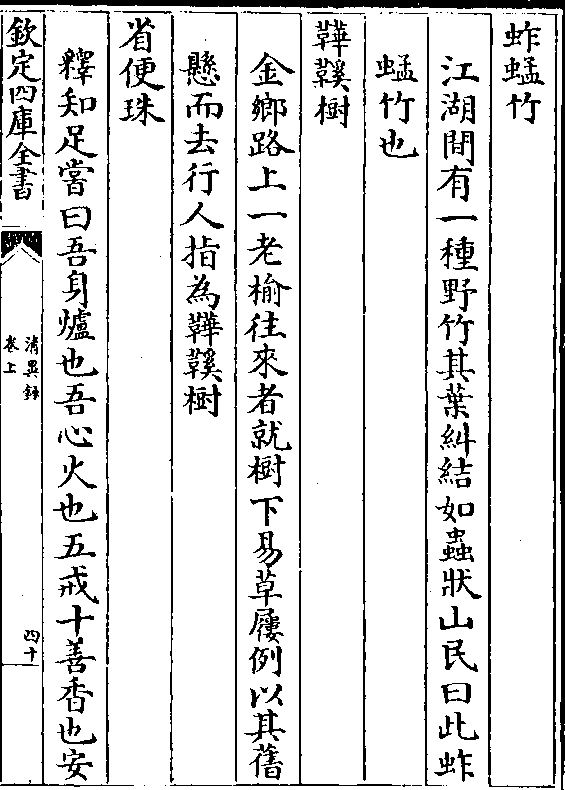 蚱蜢竹
江湖間有一種野竹其葉糾結如蟲狀山民曰此蚱
蜢竹也
鞾鞵樹
金鄉路上一老榆往來者就樹下易草屨例以其舊
懸而去行人指為鞾鞵樹
省便珠
釋知足嘗曰吾身爐也吾心火也五戒十善香也安
欽定四庫全書
清異錄
卷上
四十